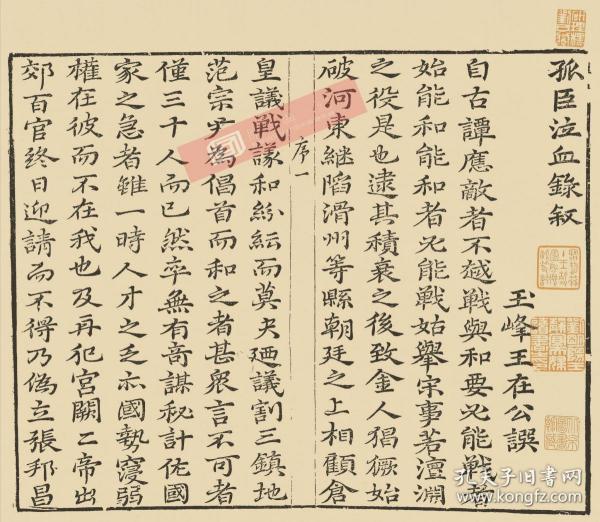 孤臣泣血錄叙
玉峰王在公譔
自古譚應敵者不越戰與和要必能戰者
始能和能和者必能戰姑舉宋事若澶淵
之役是也逮其積衰之後致金人猖獗始
破河東繼陷滑州等縣朝廷之上相顧倉
序一
皇議戰議和紛紜而莫夬廼議割三鎮地
范宗尹為倡首而和之者甚衆言不可者
僅三十人而已然卒無有竒謀秘計佐國
家之急者雖一時人才之乏亦國勢寖弱
權在彼而不在我也及再犯宮闕二帝出
郊百官終日迎請而不得乃偽立張邦昌
孔夫子旧书网
www.kongfz.com